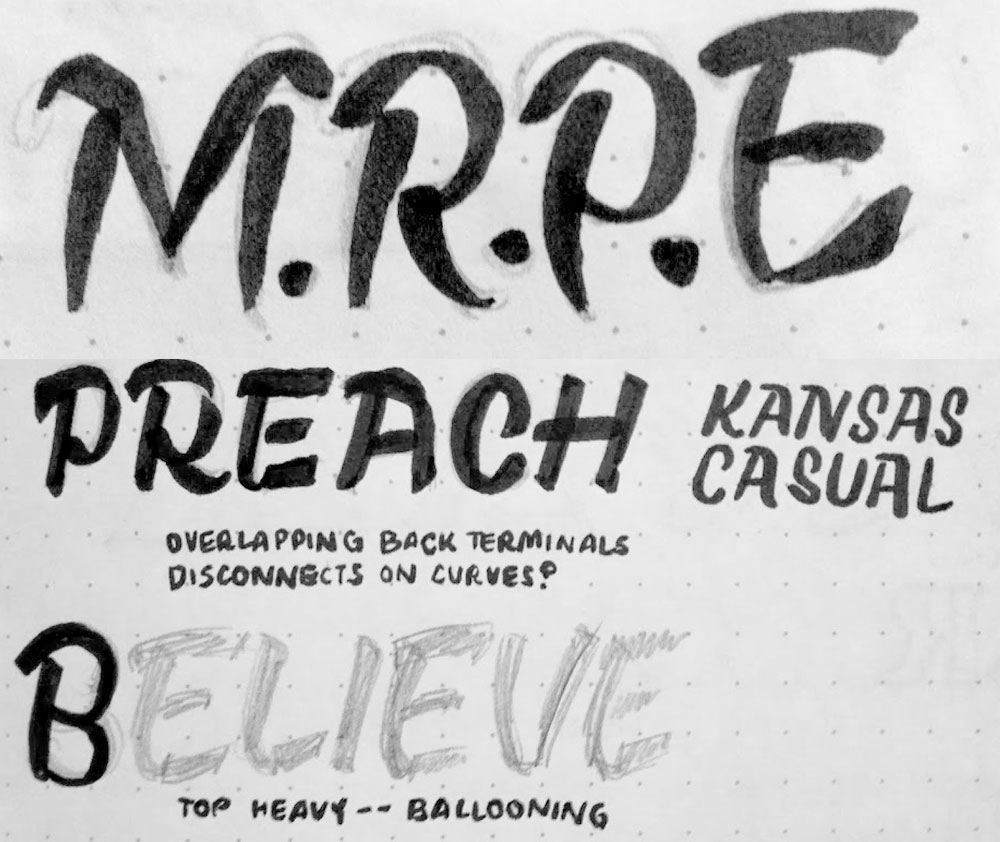 M.R.P.E
PREACH
KANSAS
CASUAL
OVERLAPPING BACK TERMINALS
DISCONNECTS ON CURVES?
BELIEVE
TOP HEAVY -- BALLOONING